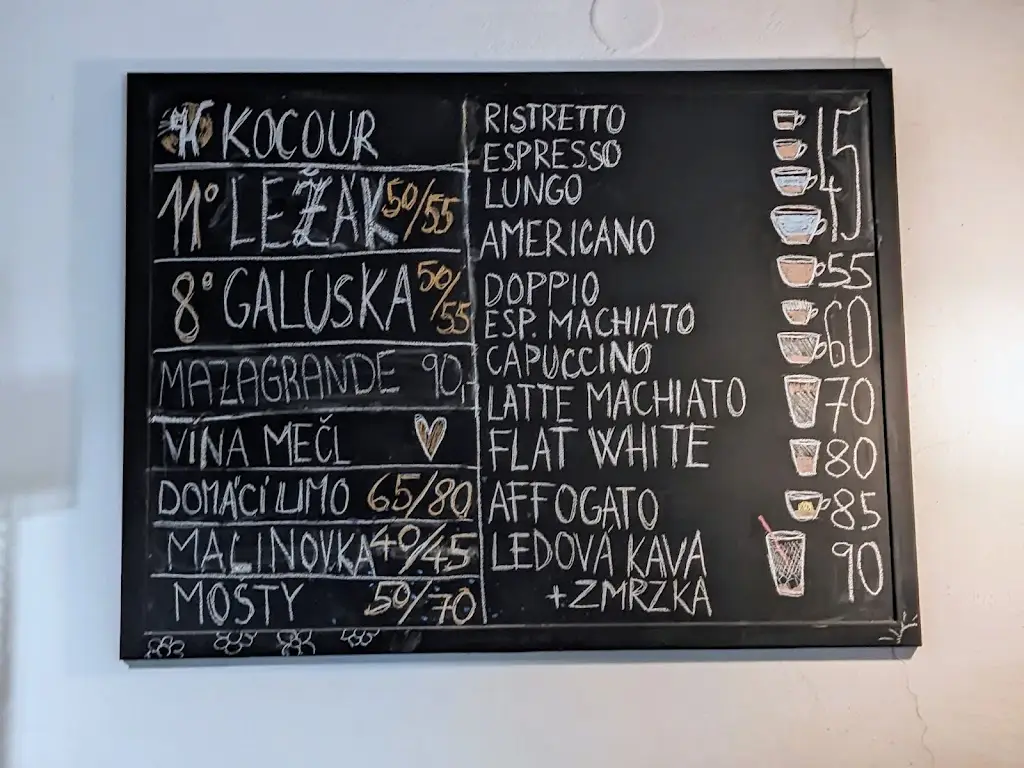 KOCOUR
11° LEŽÁK 50/55
8° GALUSKA 50/55
MAZAGRANDE 90,-
VÍNA MEČL
DOMÁCÍ LIMO 65/80
MALINOVKA 40/45
MOŠTY 50/70
RISTRETTO
ESPRESSO
LUNGO 45
AMERICANO
DOPPIO 55
ESP. MACHIATO
CAPUCCINO 60
LATTE MACHIATO 70
FLAT WHITE 80
AFFOGATO 85
LEDOVÁ KAVA 90
+ZMRZKA